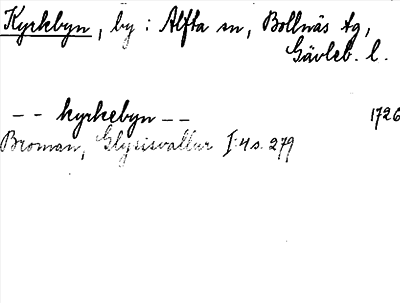 Kyrkbyn, by : Alfta sn, Bollnäs tg,
Gävleb. l.
-- kyrkebyn -- 1726
Broman, Glysisvallur I:4 s. 279